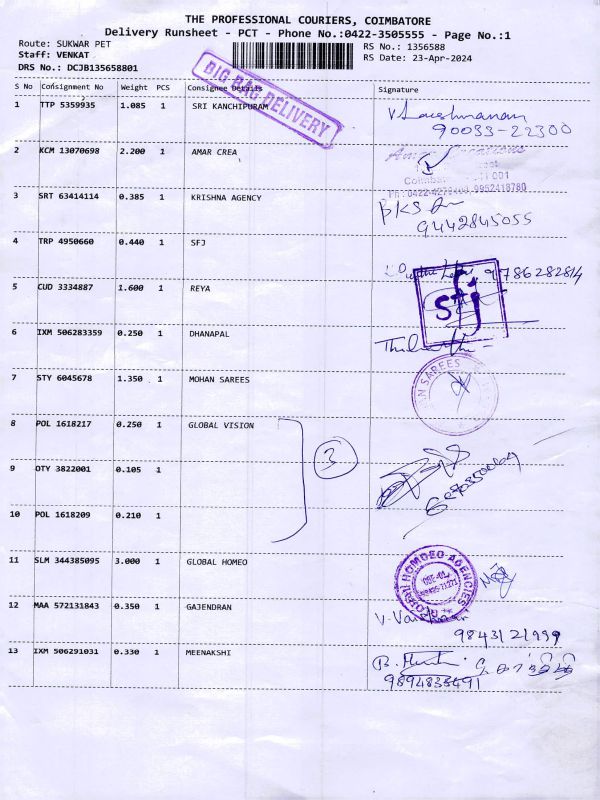 THE PROFESSIONAL COURIERS, COIMBATORE
Delivery Runsheet - PCT - Phone No.:0422-3505555 - Page No.:1
Route: SUKWAR PET
RS No.: 1356588
Staff: VENKAT
RS Date: 23-Apr-2024
DRS No.: DCJB135658801
BIG BAG DELIVERY
S No Consignment No Weight PCS Consignee Details Signature
1 TTP 5359935 1.085 1 SRI KANCHIPURAM
90033-22300
2 KCM 13070698 2.200 1 AMAR CREA
3 SRT 63414114 0.385 1 KRISHNA AGENCY
9442845055
4 TRP 4950660 0.440 1 SFJ
9786282814
sfj
5 CUD 3334887 1.600 1 REYA
6 IXM 506283359 0.250 1 DHANAPAL
7 STY 6045678 1.350 1 MOHAN SAREES
SAREES
8 POL 1618217 0.250 1 GLOBAL VISION
3
9 OTY 3822001 0.105 1
10 POL 1618209 0.210 1
11 SLM 344385095 3.000 1 GLOBAL HOMEO
HOMOEO AGENCIES
12 MAA 572131843 0.350 1 GAJENDRAN
9843121999
13 IXM 506291031 0.330 1 MEENAKSHI
9894838491